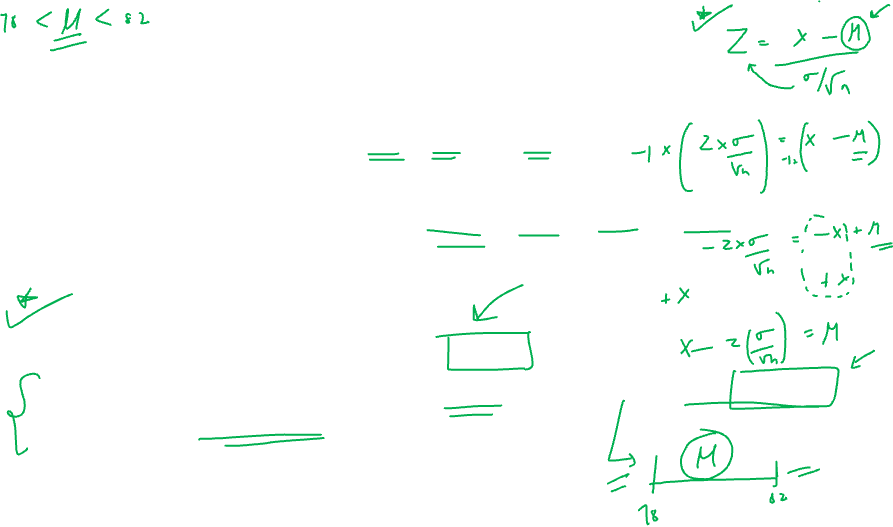 78 < μ < 82
Z = x - μ
σ/√n
-1 × ( z × σ/√n ) = -1 × ( x - μ )
- z × σ/√n = - x + μ
+ x
+ x
x - z ( σ/√n ) = μ
μ
78 82